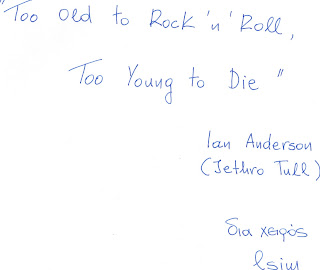 "Too old to Rock 'n' Roll,
Too Young to Die"
Ian Anderson
(Jethro Tull)
δια χειρός